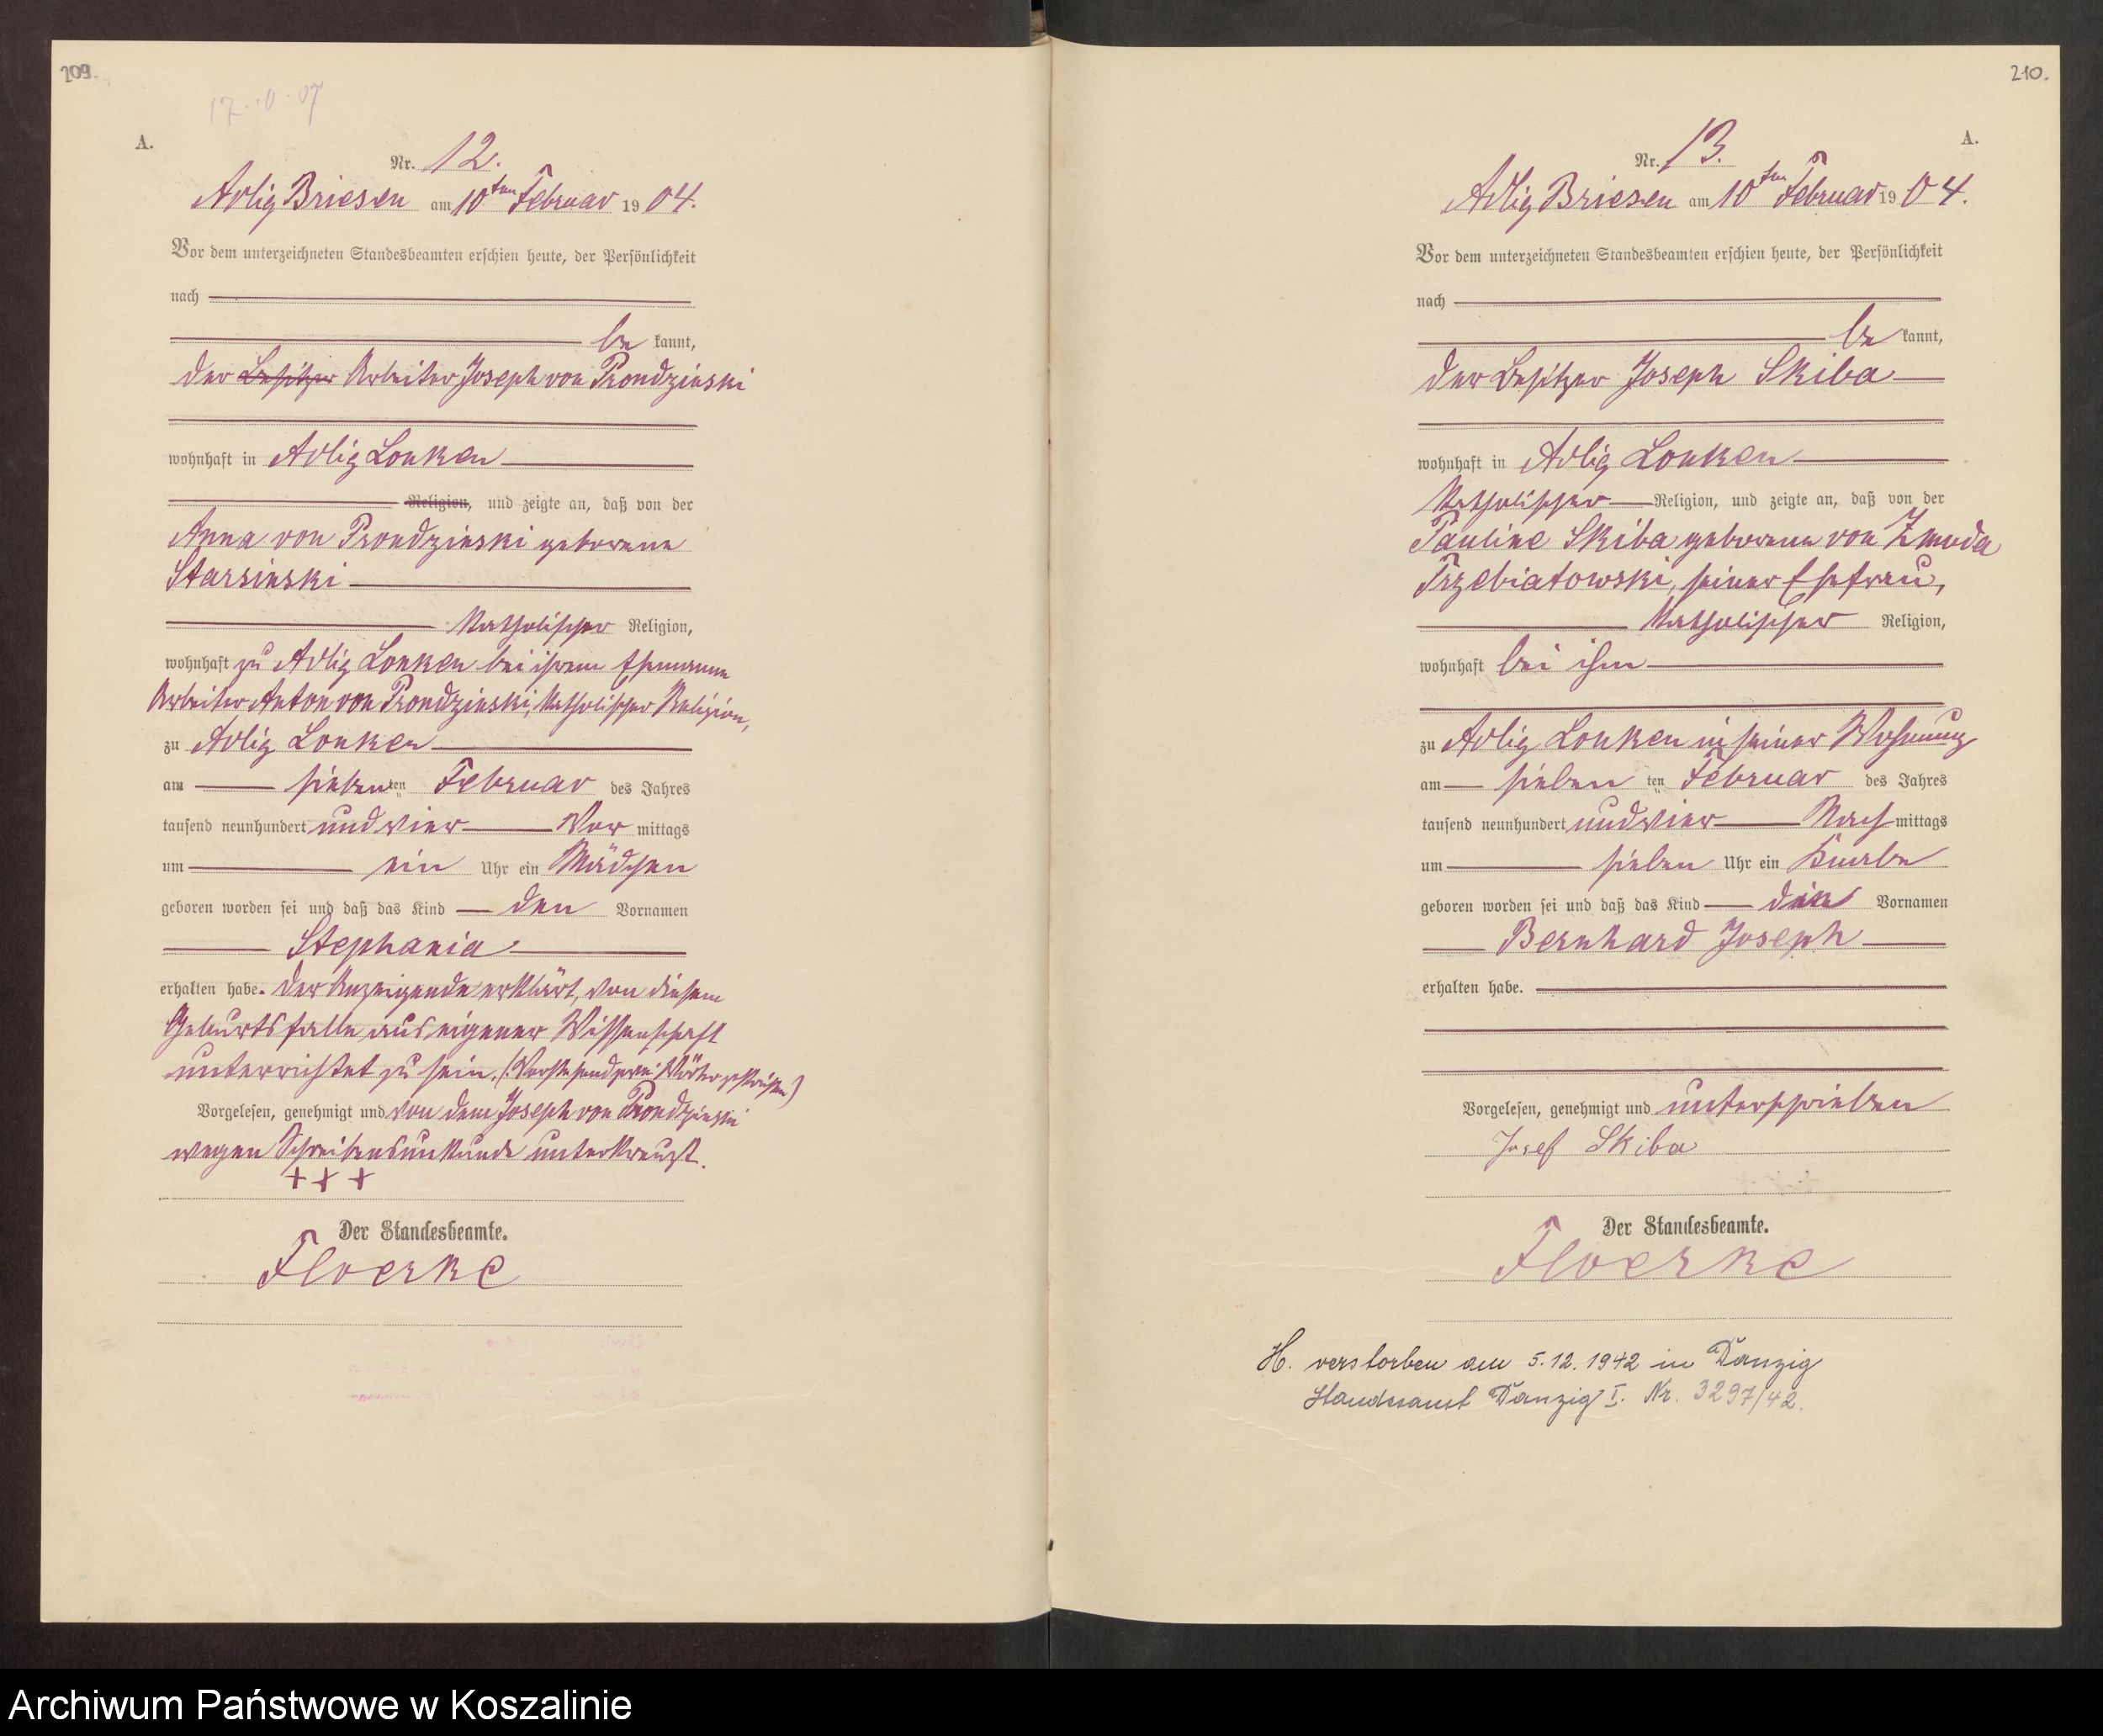 209.
A.
Nr. 12.
Adlig Briesen am 10ten Februar 1904.
Vor dem unterzeichneten Standesbeamten erschien heute, der Persönlichkeit
nach
be kannt,
der Besitzer Arbeiter Joseph von Prondzinski
wohnhaft in Adlig Lonken
Religion, und zeigte an, daß von der
Anna von Prondzinski geborene
Starsinski
katholischer Religion,
wohnhaft zu Adlig Lonken bei ihrem Ehemanne
Arbeiter Anton von Prondzinski, katholischer Religion,
zu Adlig Lonken
am siebenten Februar des Jahres
tausend neunhundert und vier Vor mittags
um ein Uhr ein Mädchen
geboren worden sei und daß das Kind den Vornamen
Stephania
erhalten habe. Der Anzeigende erklärt, von diesem
Geburtsfalle aus eigener Wissenschaft
unterrichtet zu sein. (Vorstehend zwei Wörter gestrichen)
Vorgelesen, genehmigt und von dem Joseph von Prondzinski
wegen Schreibensunkunde unterkreuzt.
+ + +
Der Standesbeamte.
Floerke
210.
A.
Nr. 13.
Adlig Briesen am 10ten Februar 1904.
Vor dem unterzeichneten Standesbeamten erschien heute, der Persönlichkeit
nach
be kannt,
der Besitzer Joseph Skiba
wohnhaft in Adlig Lonken
katholischer Religion, und zeigte an, daß von der
Pauline Skiba geborene von Zmuda
Trzebiatowski, seiner Ehefrau,
katholischer Religion,
wohnhaft bei ihm
zu Adlig Lonken in seiner Wohnung
am sieben ten Februar des Jahres
tausend neunhundert und vier Nach mittags
um sieben Uhr ein Knabe
geboren worden sei und daß das Kind die Vornamen
Bernhard Joseph
erhalten habe.
Vorgelesen, genehmigt und unterschrieben
Josef Skiba
Der Standesbeamte.
Floerke
H. verstorben am 5.12.1942 in Danzig
Standesamt Danzig I. Nr. 3297/42.
Archiwum Państwowe w Koszalinie